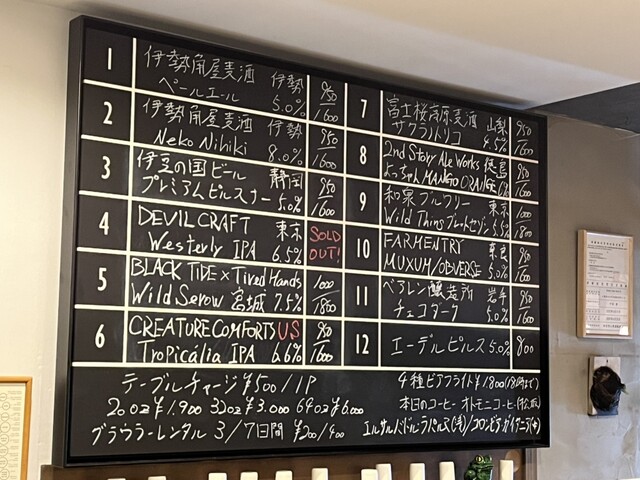 1 伊勢角屋麦酒 伊勢 950
ペールエール 5.0% 1600
2 伊勢角屋麦酒 伊勢 950
Neko Nihiki 8.0% 1600
3 伊豆の国ビール 静岡 950
プレミアムピルスナー 5.0% 1600
4 DEVIL CRAFT 東京 SOLD
Westerly IPA 6.5% OUT!
5 BLACK TIDE×Tired Hands 1000
Wild Serow 宮城 7.5% 1800
6 CREATURE COMFORTS US 950
Tropicália IPA 6.6% 1600
7 富士桜高原麦酒 山梨 950
サクラノトリコ 4.5% 1600
8 2nd Story Ale Works 徳島 950
よっちゃん MANGO ORANGE 1600
9 和泉ブルワリー 東京 1000
Wild Thing ブレットセゾン 5.5% 1800
10 FARMENTRY 950
MUXUM/OBVERSE 5.0% 1600
11 ベアレン醸造所 岩手 950
チェコダーク 5.0% 1600
12 エーデルピルス 5.0% 800
テーブルチャージ ¥500/1P
20oz ¥1.900 32oz ¥3.000 64oz ¥6.000
グラウラーレンタル 3/7日間 ¥200/400
4種ビアフライト ¥1.800 (18時まで)
本日のコーヒー オトモニコーヒー
エルサルバドル・ラパルマ(浅)/コロンビア・ガイアニア